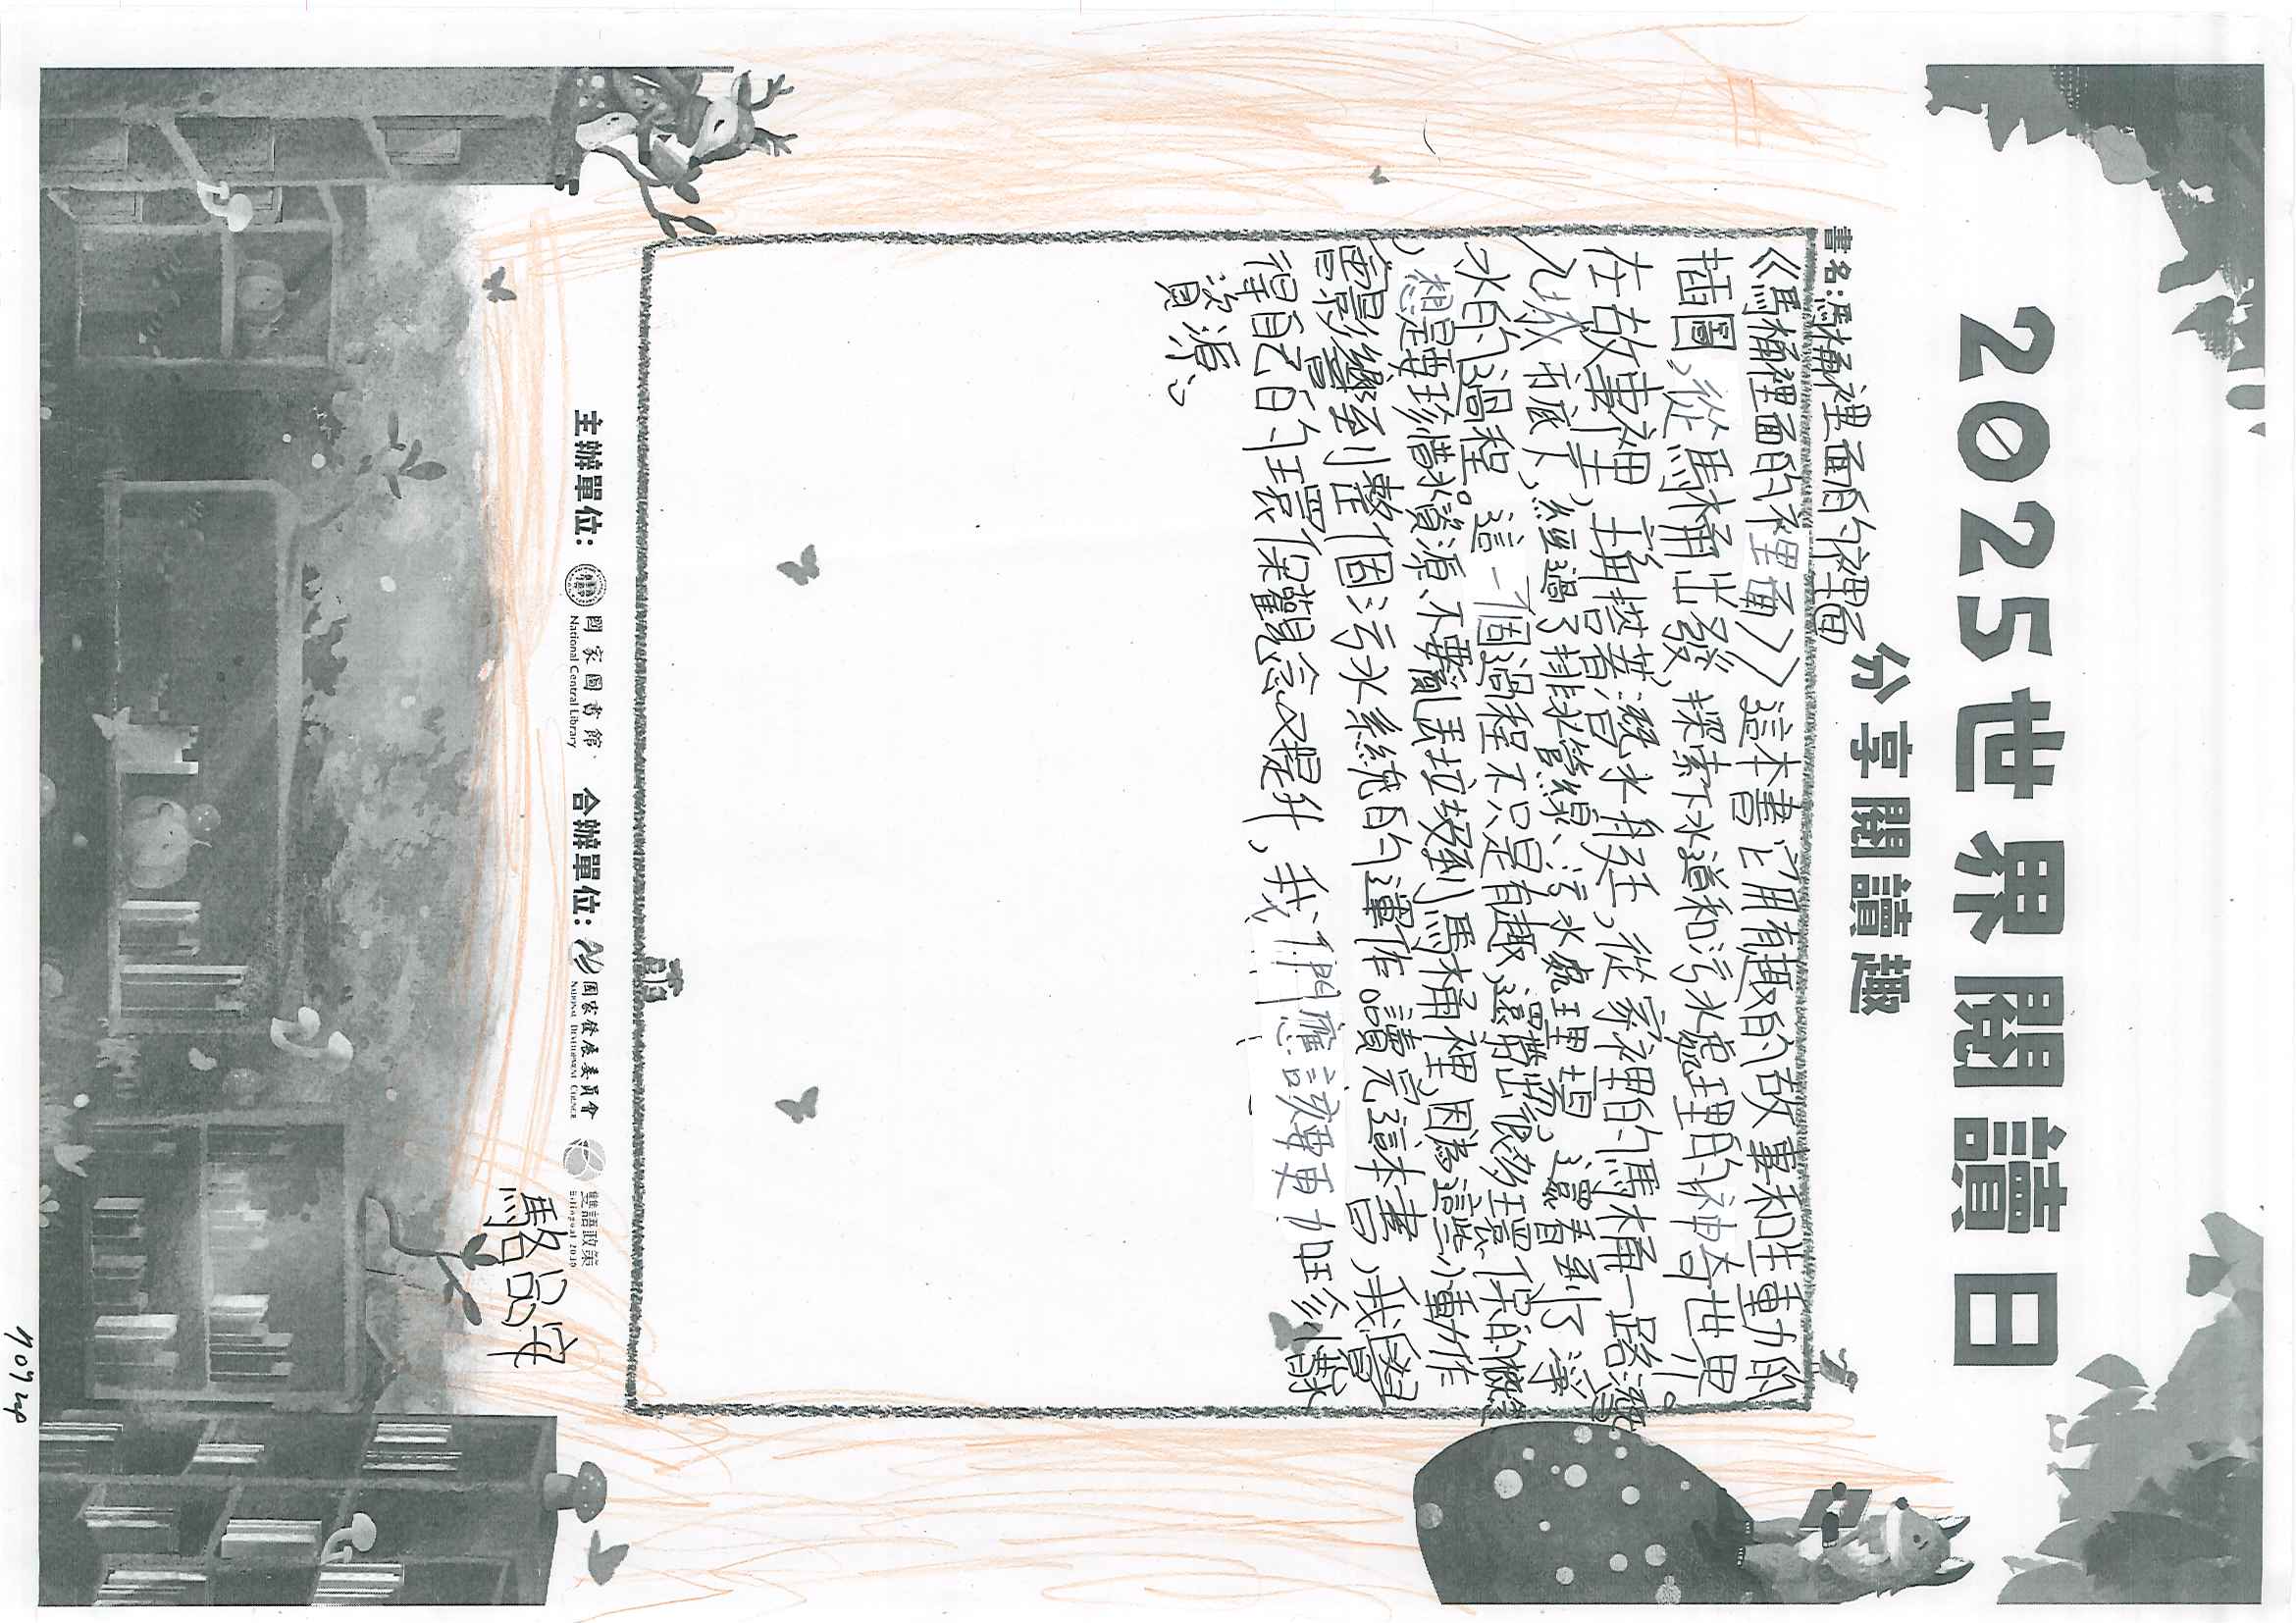 2025世界閱讀日
分享閱讀趣
書名:馮桶裡面的裡面
《馬桶裡面的裡面》這本書它用有趣的故事和生動的
插圖,從馬桶出發,探索下水道和污水處理的神奇世界。
在故事裡,主角拱著溉水身廷,從家裡的馬桶一路漂
入城市底下,經過了排水管線、污水處理場,還看到了淨
水的過程。這一個過程不只是有趣,還帶出很多環保的概念,
想是要珍惜水資源、不要亂丟垃圾到馬桶裡,因為這些小動作
會影響到整個污水系統的運作。讀完這本書,我覺
得自己的環保觀念又提升,我們應該要更加珍
資源。
主辦單位: 國家圖書館 National Central Library 合辦單位: 國家發展委員會 National Development Council 雙語政策 Bilingual 2030
駱品安